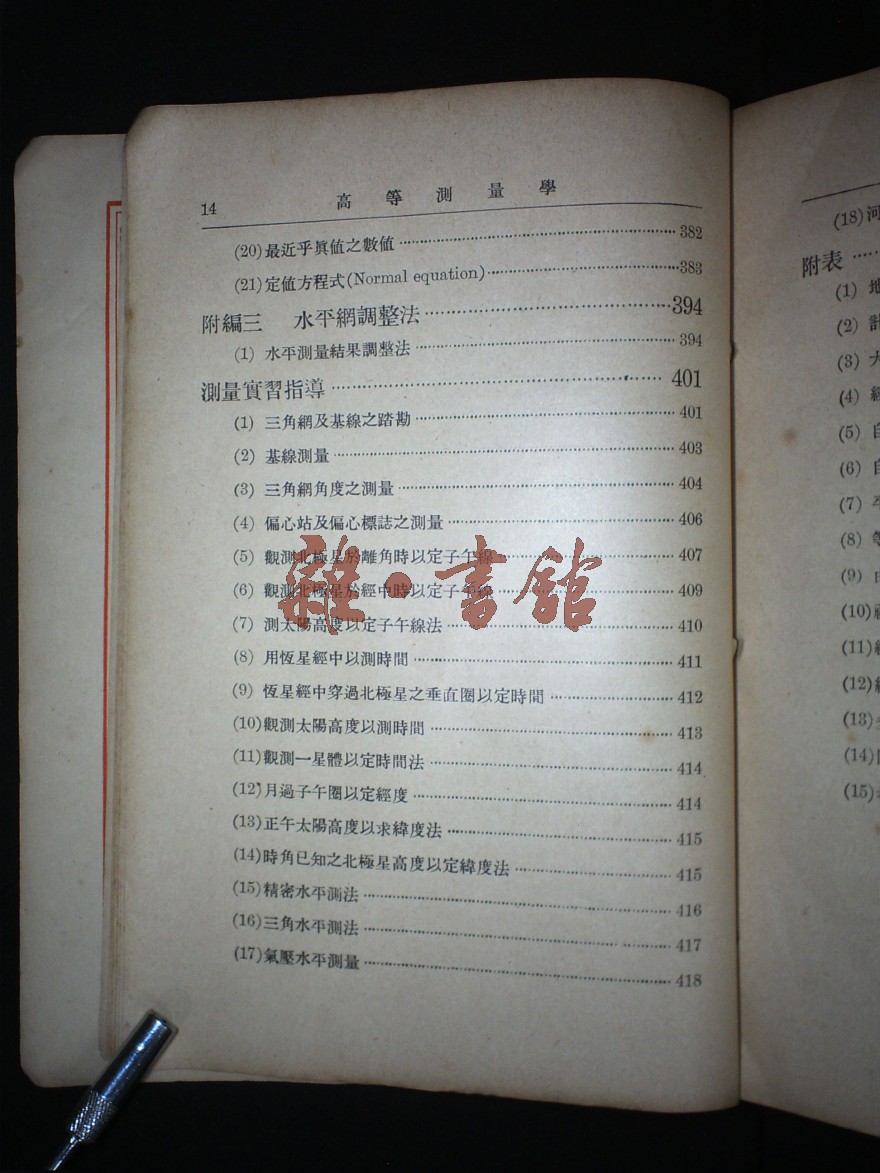 14 高等測量學
(20)最近乎眞值之數値 382
(21)定值方程式(Normal equation) 383
附編三 水平網調整法 394
(1) 水平測量結果調整法 394
測量實習指導 401
(1) 三角網及基線之踏勘 401
(2) 基線測量 403
(3) 三角網角度之測量 404
(4) 偏心站及偏心標誌之測量 406
(5) 觀測北極星於離角時以定子午線 407
(6) 觀測北極星於經中時以定子午線 409
(7) 測太陽高度以定子午線法 410
(8) 用恆星經中以測時間 411
(9) 恆星經中穿過北極星之垂直圈以定時間 412
(10)觀測太陽高度以測時間 413
(11)觀測一星體以定時間法 414
(12)月過子午圈以定經度 414
(13)正午太陽高度以求緯度法 415
(14)時角已知之北極星高度以定緯度法 415
(15)精密水平測法 416
(16)三角水平測法 417
(17)氣壓水平測量 418
雜·書館
(18)河
附表
(1) 地
(2) 計
(3) 大
(4) 經
(5) 自
(6) 自
(7) 平
(8) 等
(9) 由
(10)
(11)
(12)
(13)
(14)
(15)